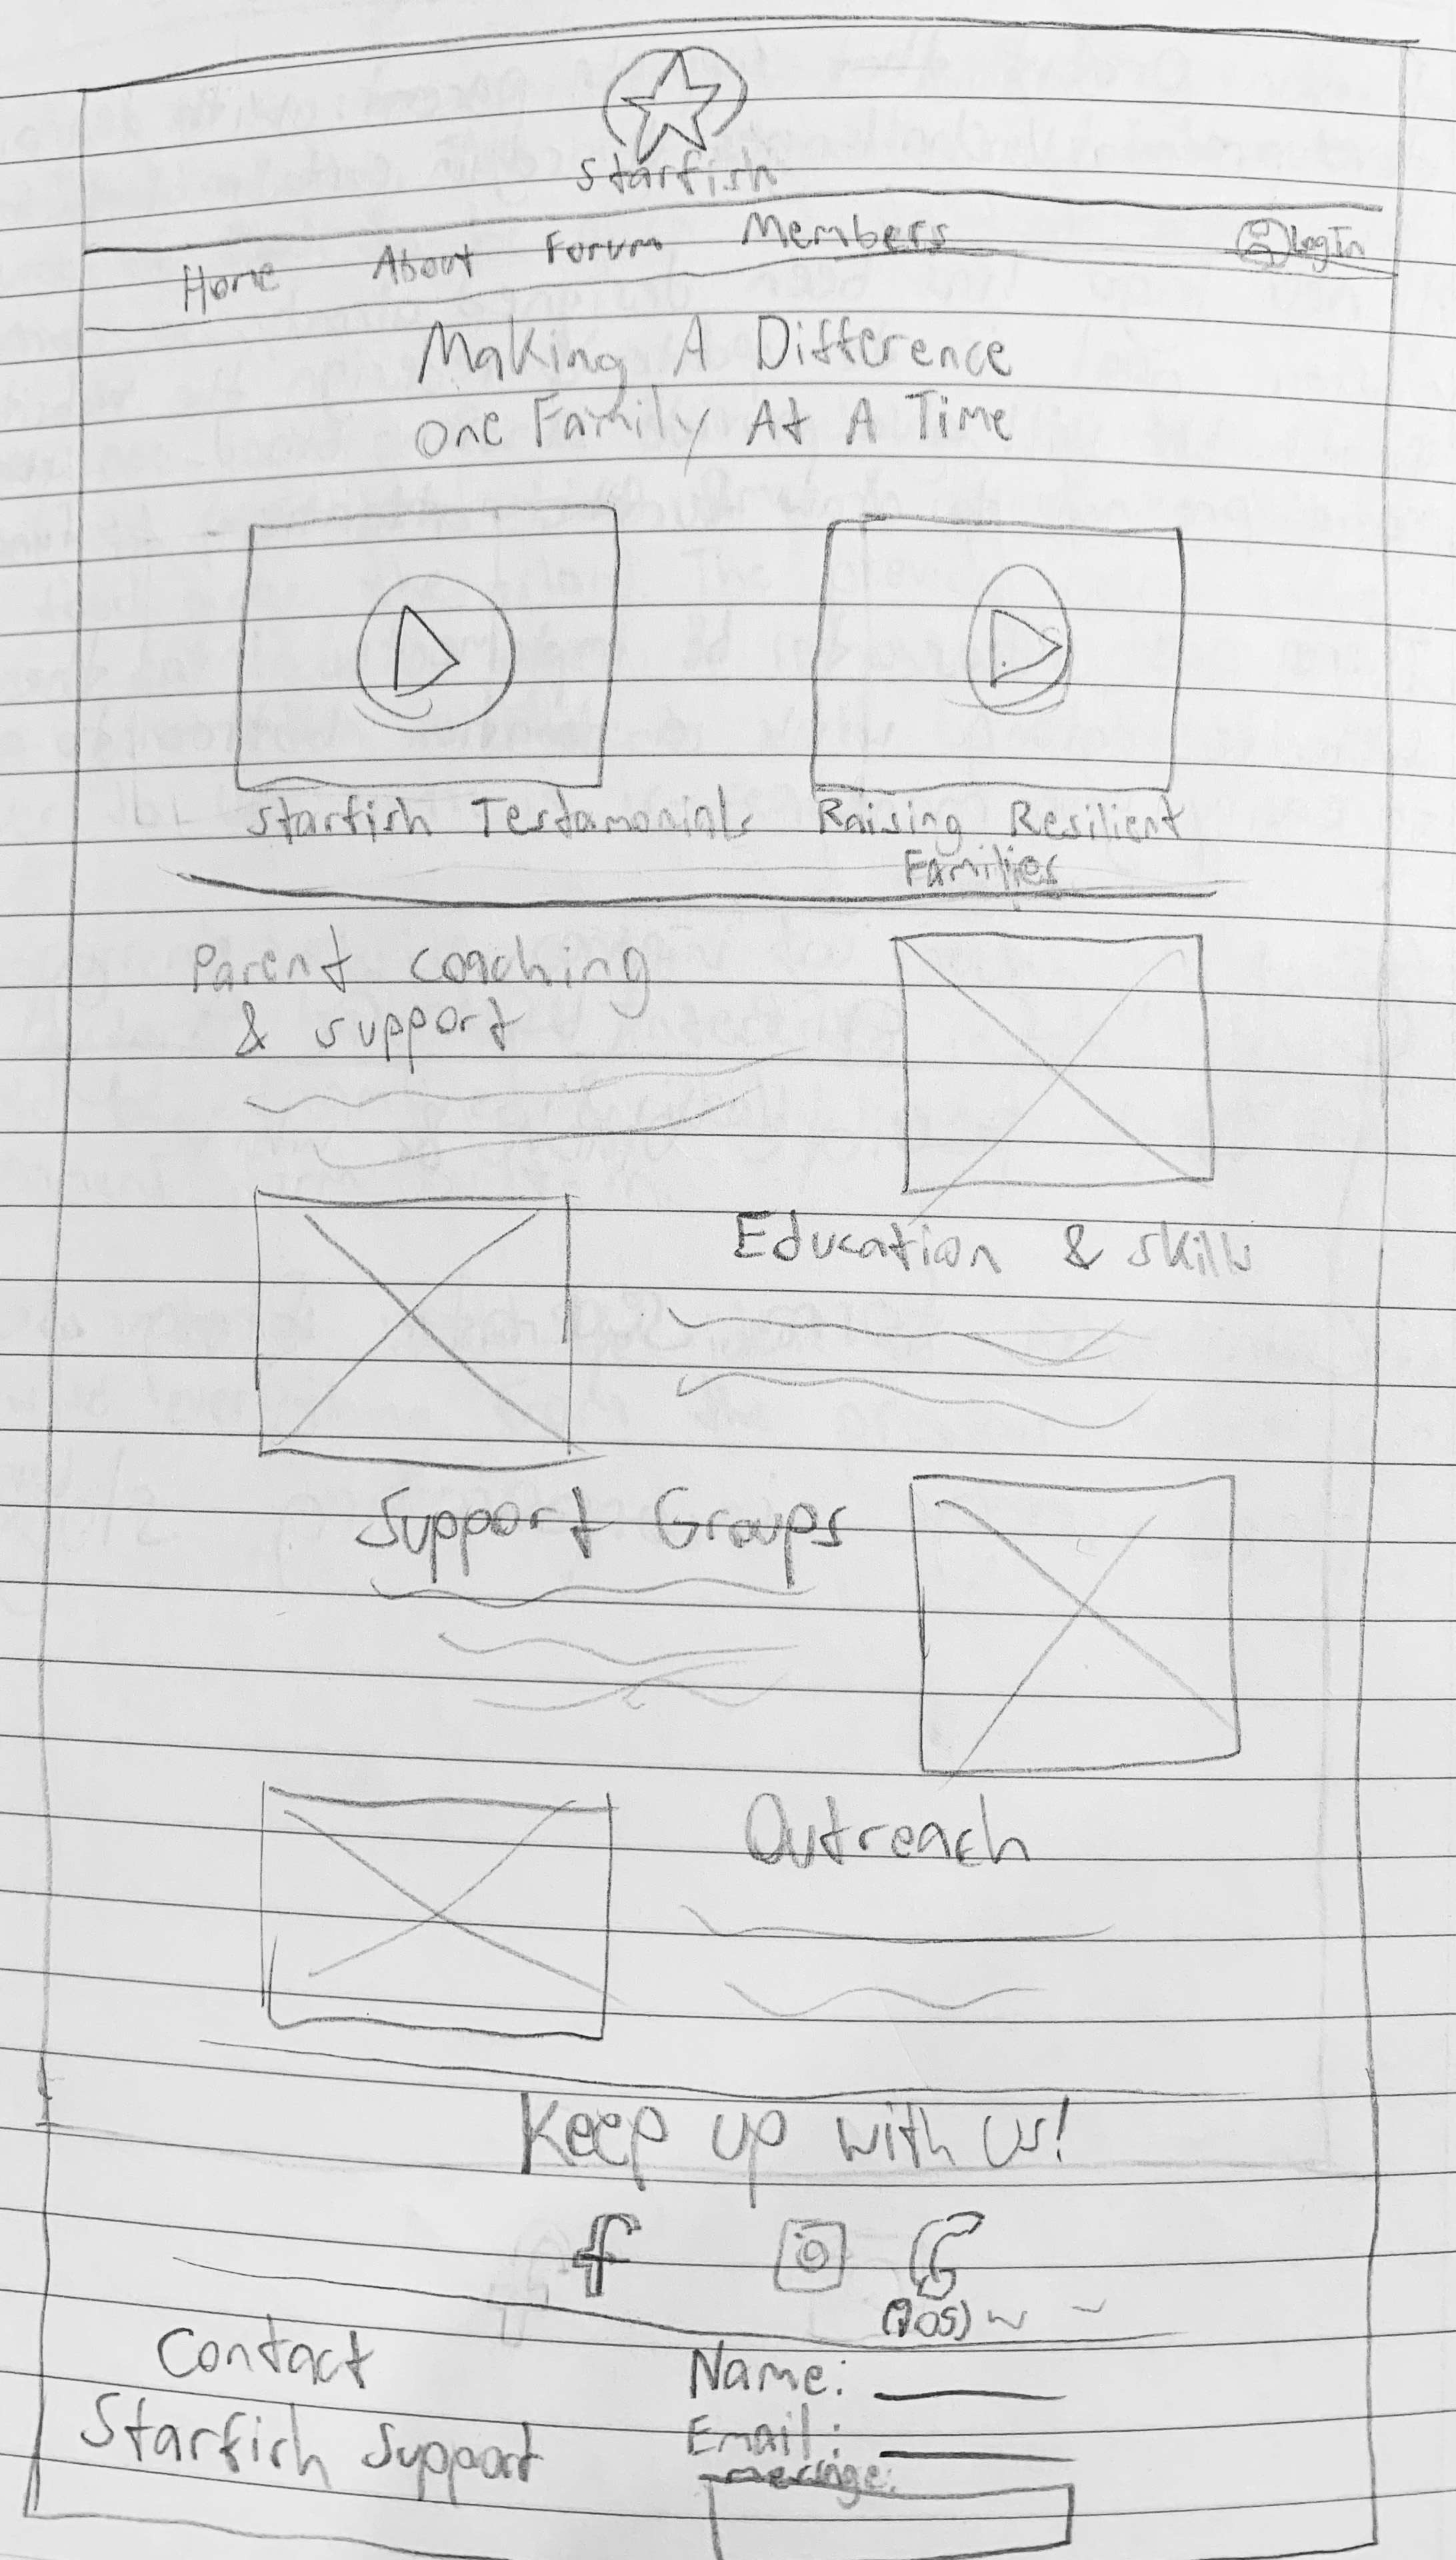 Starfish
Home About Forum Members LogIn
Making A Difference
One Family At A Time
Starfish Testamonials
Raising Resilient
Families
Parent coaching
& support
Education & skills
Support Groups
Outreach
Keep up with us!
(905)
Contact
Starfish Support
Name:
Email:
message: